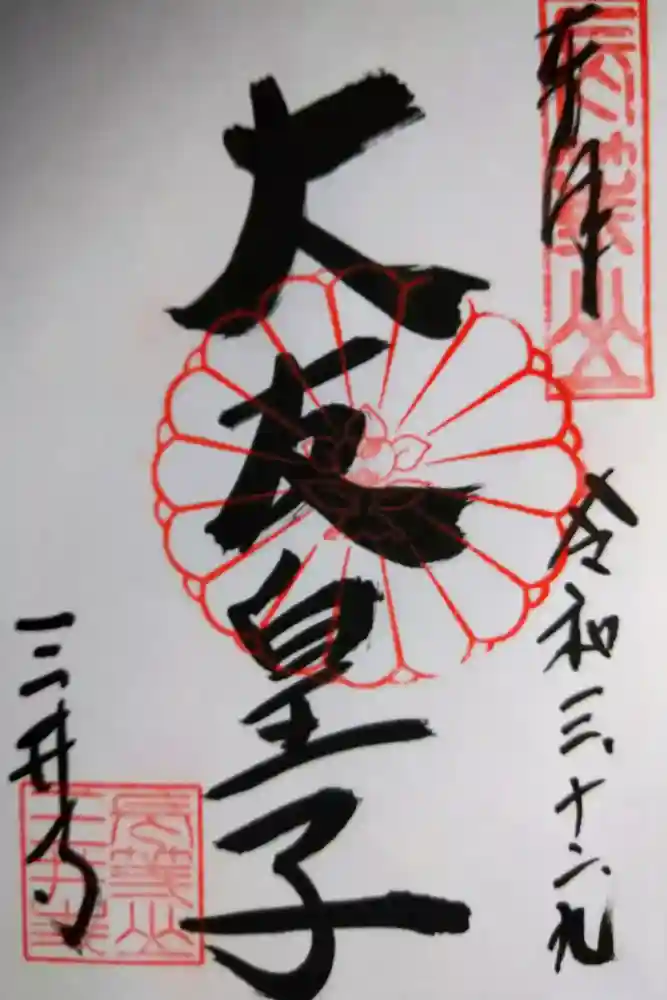 奉拝
長等山
令和三、十二、九
大友皇子
三井寺
長等山
三井寺